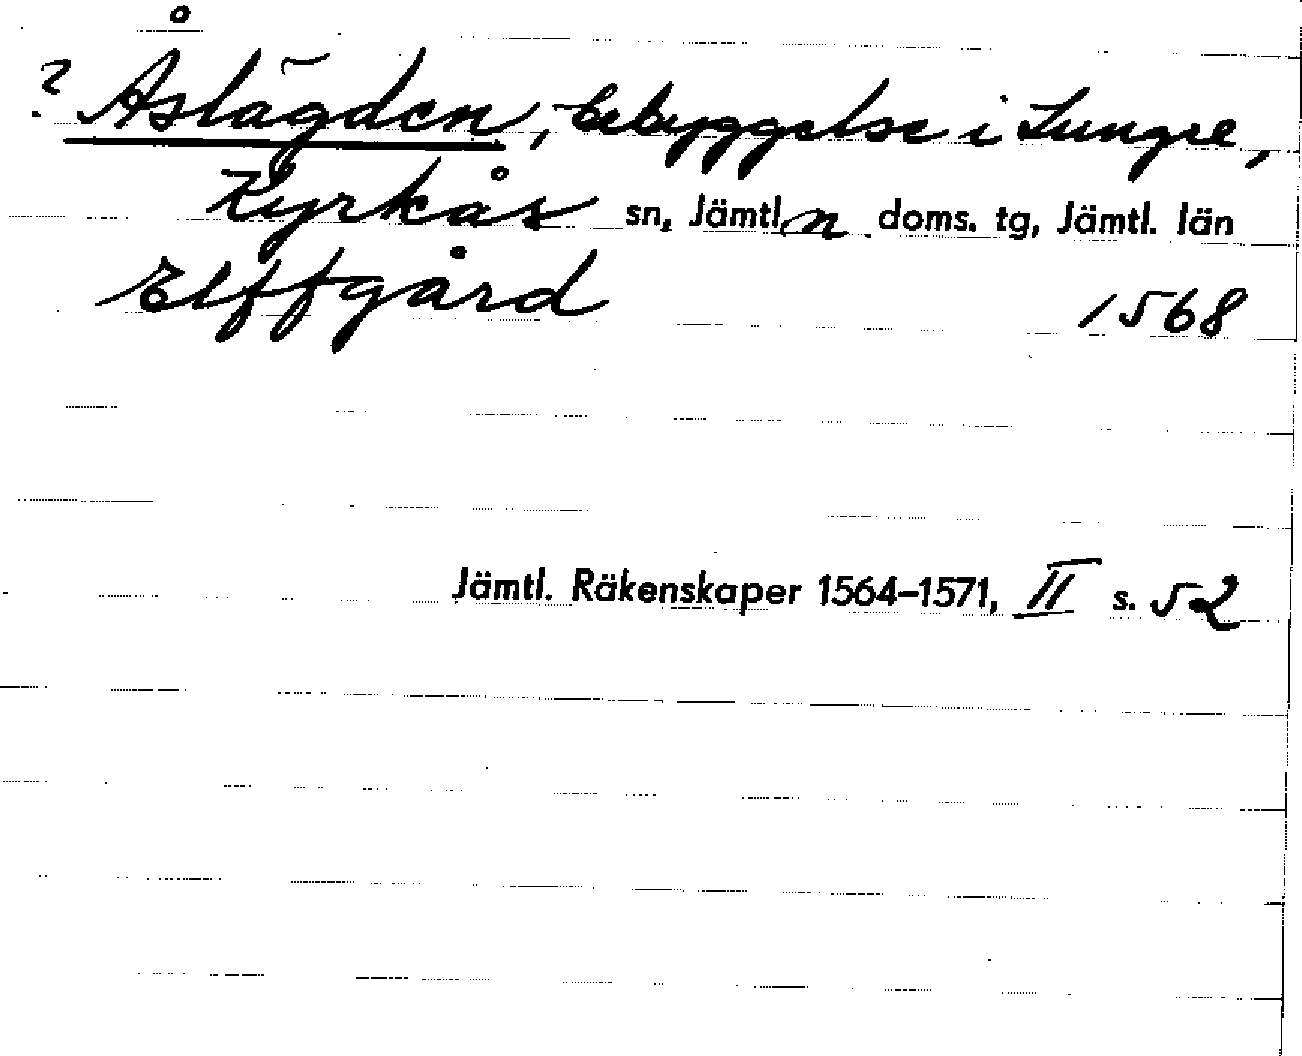 ? Åslägden, bebyggelse i Lungre,
Kyrkås sn, Jämtl. n doms. tg, Jämtl. län
Elffgård 1568
Jämtl. Räkenskaper 1564–1571, II s. 52